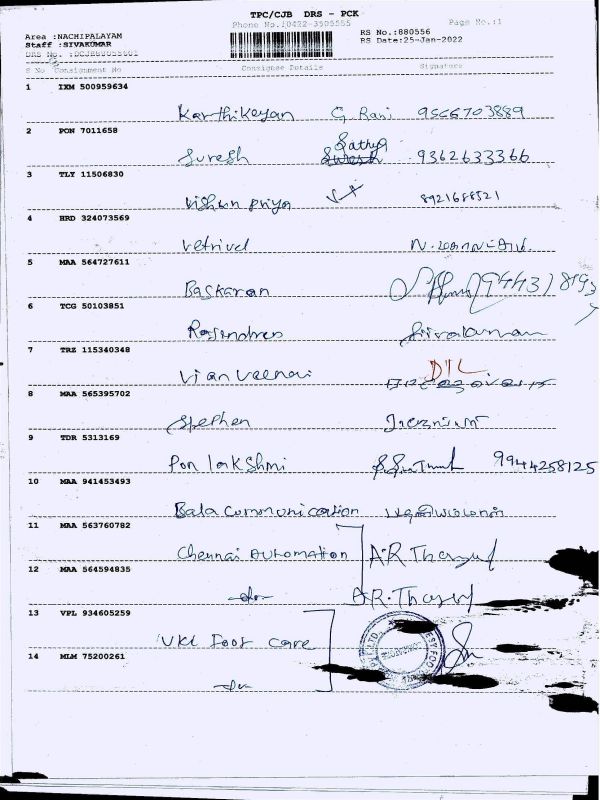 TPC/CJB DRS - PCK
Phone No.:0422-3505555 Page No.:1
Area :NACHIPALAYAM RS No.:880556
Staff :SIVAKUMAR RS Date:25-Jan-2022
DRS No.
S No Consignment No Consignee Details Signature
1 IXM 500959634
Karthikeyan G Rani 9566703889
2 PON 7011658
Sathya
Suresh 9362633366
3 TLY 11506830
Vishnu priya 8921688521
4 HRD 324073569
Vetrivel
5 MAA 564727611
Baskaran
6 TCG 50103851
Rajendren
7 TRZ 115340348
8 MAA 565395702
Stephen
9 TDR 5313169
Pon lakshmi 9944258125
10 MAA 941453493
Bala Communication
11 MAA 563760782
Chennai Automation A.R
12 MAA 564594835
-do- A.R.
13 VPL 934605259
VKC Foot care
14 MLM 75200261
-do-